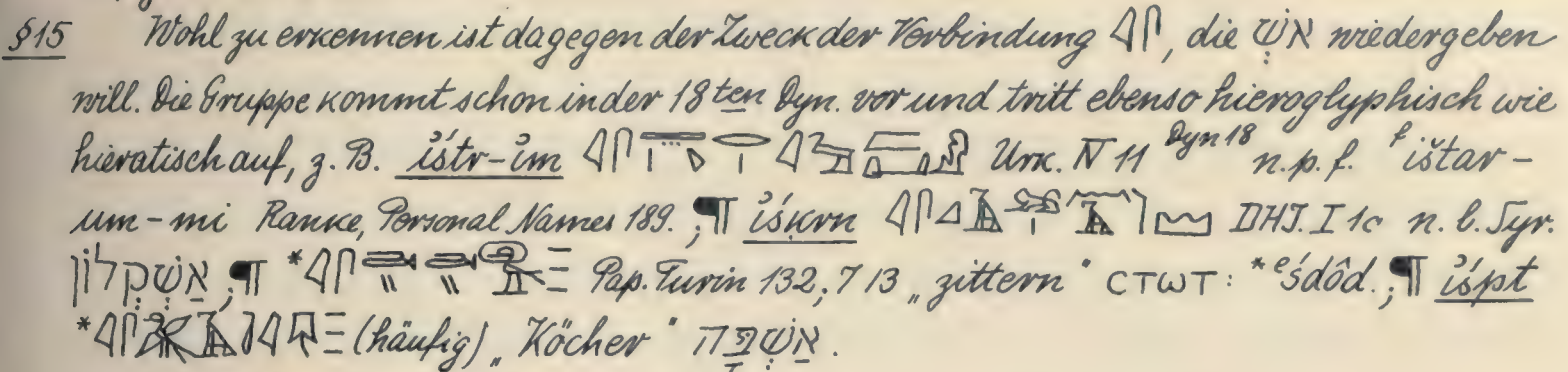 §15 Wohl zu erkennen ist dagegen der Zweck der Verbindung 𓐛𓋴, die אֶשְׁ wiedergeben
will. Die Gruppe kommt schon in der 18ten Dyn. vor und tritt ebenso hieroglyphisch wie
hieratisch auf, z. B. ἰśtr-ἰm Urk. IV 11 Dyn 18 n. p. f. f ištar-
um-mi Ranke, Personal Names 189. ;¶ ἰśḳrn DHJ. I 1c n. l. Syr.
אַשְׁקְלוֹן ;¶ * Pap. Turin 132, 7/3 „zittern“ ⲥⲧⲱⲧ: *eśdôd. ;¶ ἰśpt
* (häufig) „Köcher“ אַשְׁפָּה.